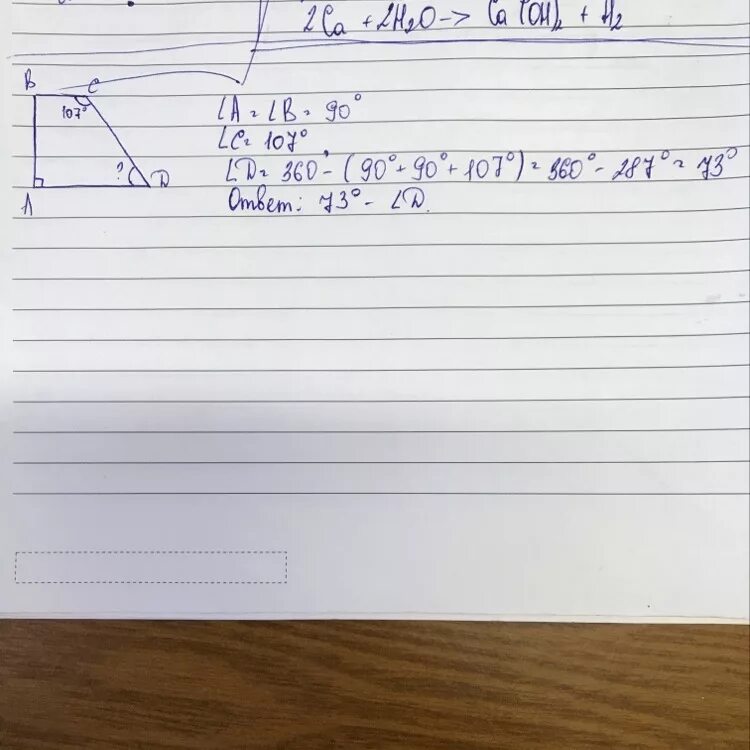 2Ca + 2H2O -> Ca(OH)2 + H2
B C
107°
? D
A
∠A = ∠B = 90°
∠C = 107°
∠D = 360 - (90° + 90° + 107°) = 360° - 287° = 73°
Ответ: 73° - ∠D.